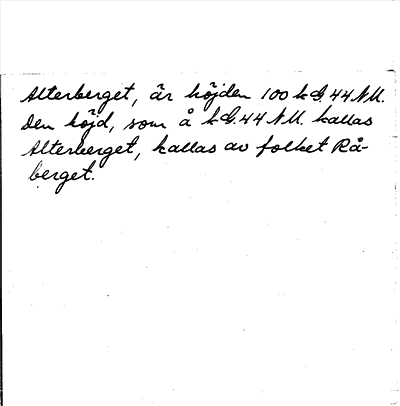 Alterberget, är höjden 100 k G. 44 N M.
Den höjd, som å k G. 44 N M. kallas
Alterberget, kallas av folket Rå-
berget.